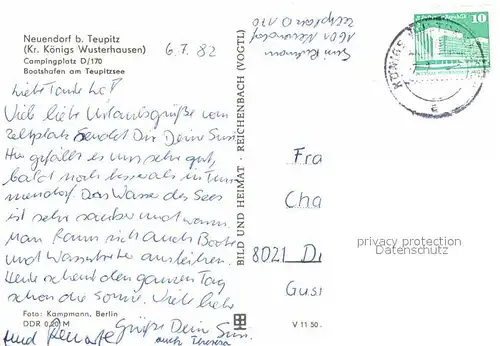 Neuendorf b. Teupitz
(Kr. Königs Wusterhausen)
Campingplatz D/170
Bootshafen am Teupitzsee
6.7.82
Liebe Tante
Viele liebe Urlaubsgrüße vom
Zeltplatz sendet Dir Deine Susi.
Hier gefällt es uns sehr gut,
bald noch besser als in
Das Wasser des Sees
ist sehr sauber und warm.
Man kann sich auch Boote
und ausleihen.
Heute scheint den ganzen Tag
schon die Sonne. Viele liebe
Grüße Deine Susi
und
auch Theresa
Foto: Kampmann, Berlin
DDR 0,20 M
BILD UND HEIMAT · REICHENBACH (VOGTL)
1601 Neuendorf
Zeltplatz D 170
KÖNIGS
10
Fra
Cha
8021 D
Gus
privacy protection
Datenschutz
V 11 50